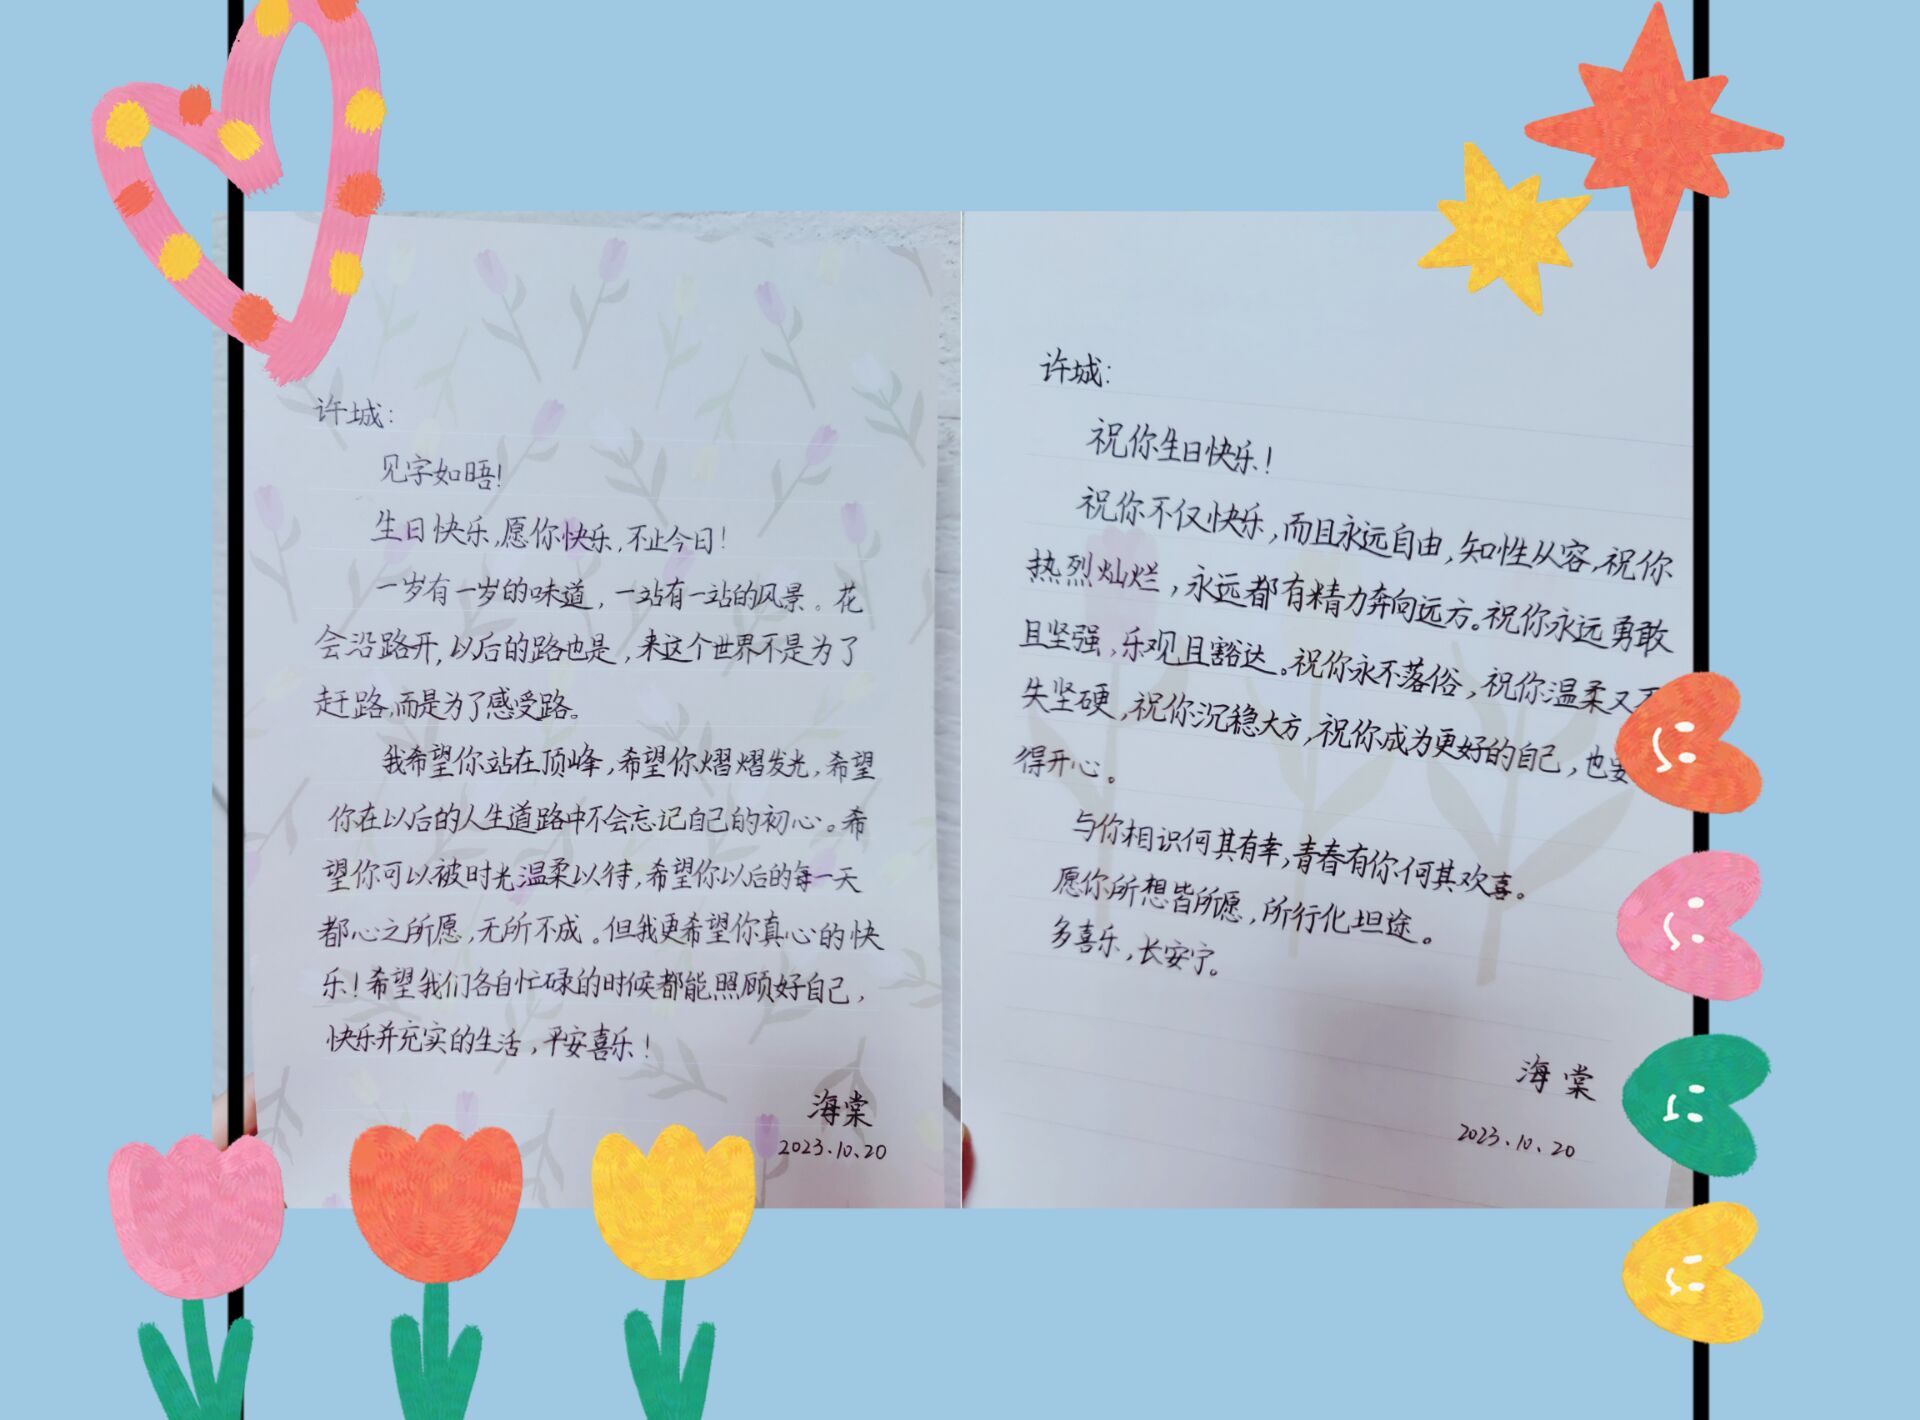 许城：
见字如晤！
生日快乐，愿你快乐，不止今日！
一岁有一岁的味道，一站有一站的风景。花
会沿路开，以后的路也是，来这个世界不是为了
赶路，而是为了感受路。
我希望你站在顶峰，希望你熠熠发光，希望
你在以后的人生道路中不会忘记自己的初心。希
望你可以被时光温柔以待，希望你以后的每一天
都心之所愿，无所不成。但我更希望你真心的快
乐！希望我们各自忙碌的时候都能照顾好自己，
快乐并充实的生活，平安喜乐！
海棠
2023.10.20
许城：
祝你生日快乐！
祝你不仅快乐，而且永远自由，知性从容，祝你
热烈灿烂，永远都有精力奔向远方。祝你永远勇敢
且坚强，乐观且豁达。祝你永不落俗，祝你温柔又
失坚硬，祝你沉稳大方，祝你成为更好的自己，也
得开心。
与你相识何其有幸，青春有你何其欢喜。
愿你所想皆所愿，所行化坦途。
多喜乐，长安宁。
海棠
2023.10.20